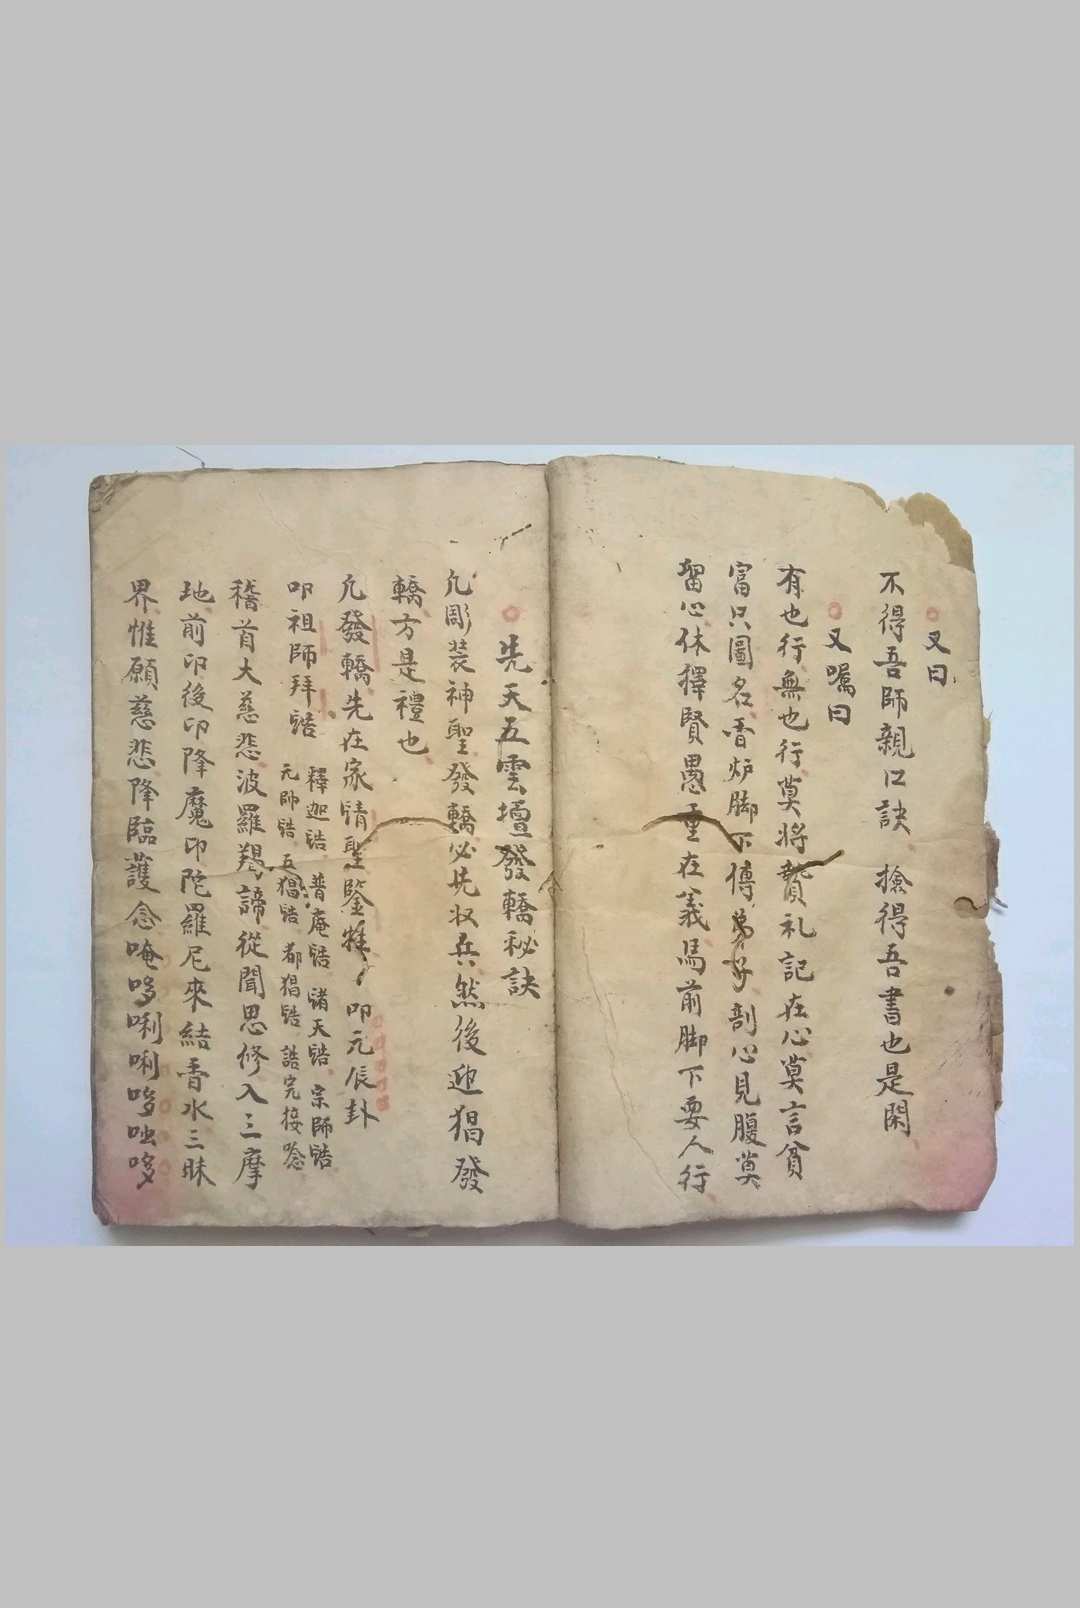 又曰
不得吾師親口訣　撿得吾書也是閑
又囑曰
有也行無也行莫將贄礼記在心莫言貧
富只圖名香炉脚下傳弟子剖心見腹莫
留心休擇賢愚重在義馬前脚下要人行
先天五雲壇發轎秘訣
凡彫装神聖發轎必先收兵然後迎猖發
轎方是禮也
凡發轎先在家請聖鑒牲叩元辰卦
叩祖師拜誥
釋迦誥 普庵誥 诸天誥 宗師誥
元帥誥 五猖誥 都猖誥 誥完接唸
稽首大慈悲波羅羯諦從聞思修入三摩
地前印後印降魔印陀羅尼來結香水三昧
界惟願慈悲降臨護念唵哆唎唎哆咄哆